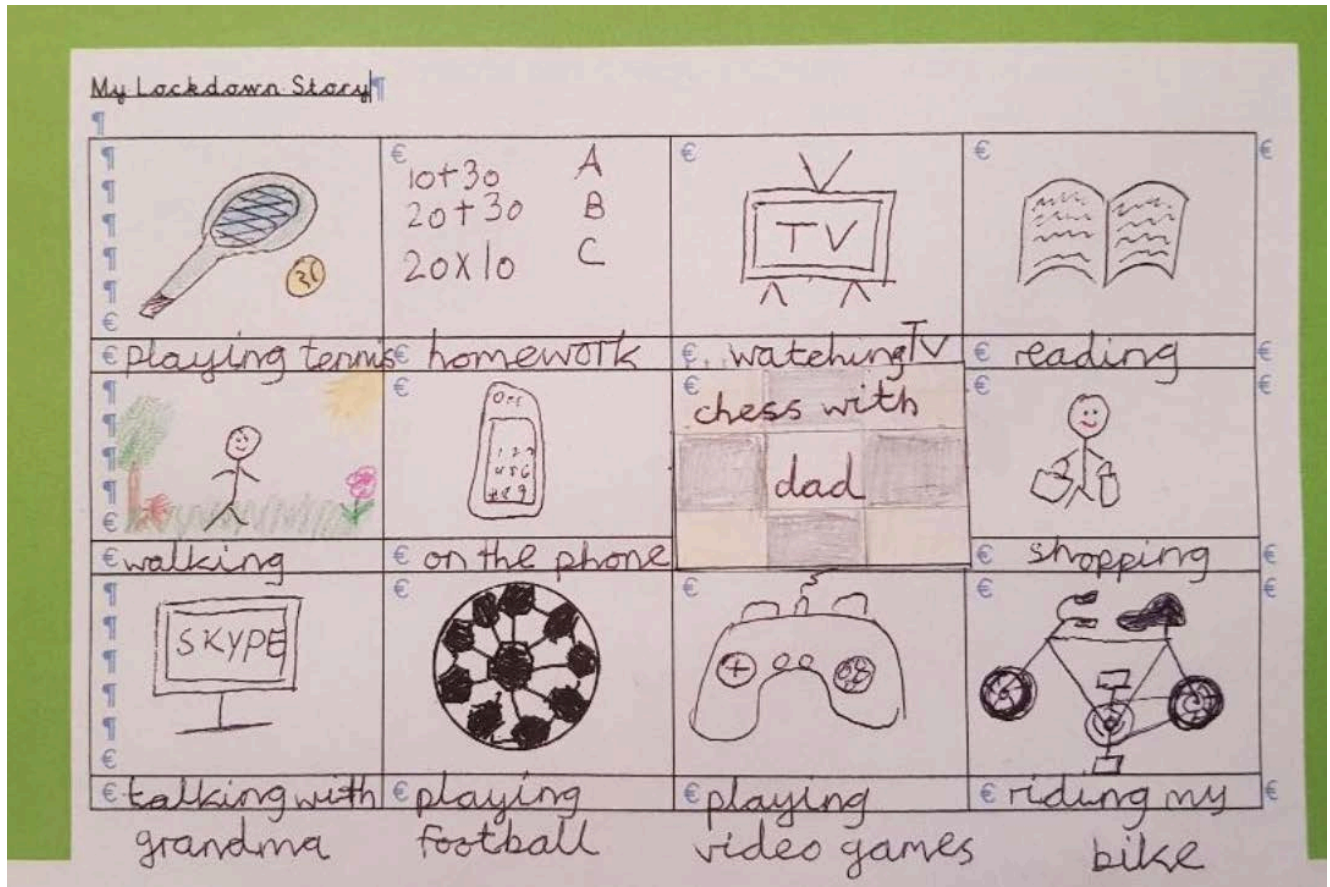 My Lockdown Story
10+30 A
20+30 B
20x10 C
TV
playing tennis
homework
watching TV
reading
Off
1 2 3
4 5 6
7 8 9
chess with
dad
walking
on the phone
shopping
SKYPE
talking with
grandma
playing
football
playing
video games
riding my
bike